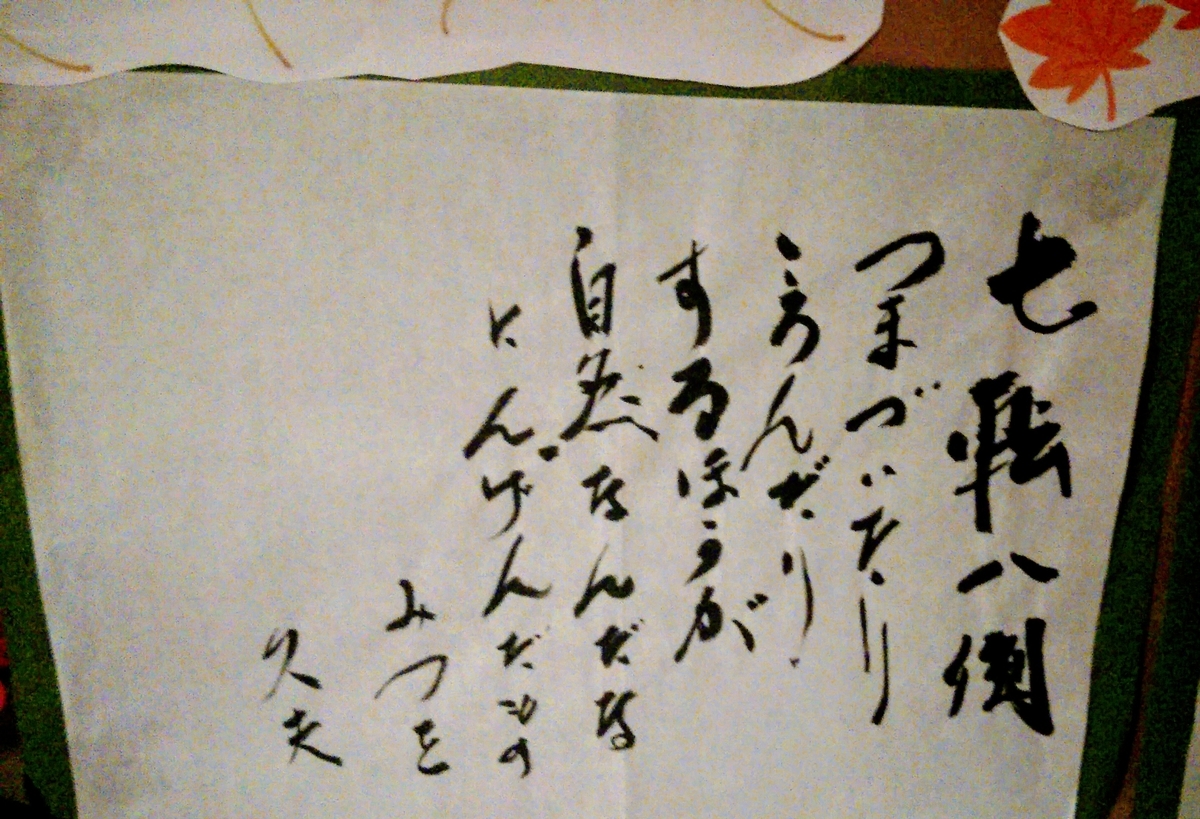 七転八倒
つまづいたり
ころんだり
するほうが
自然なんだな
にんげんだもの
みつを
久夫